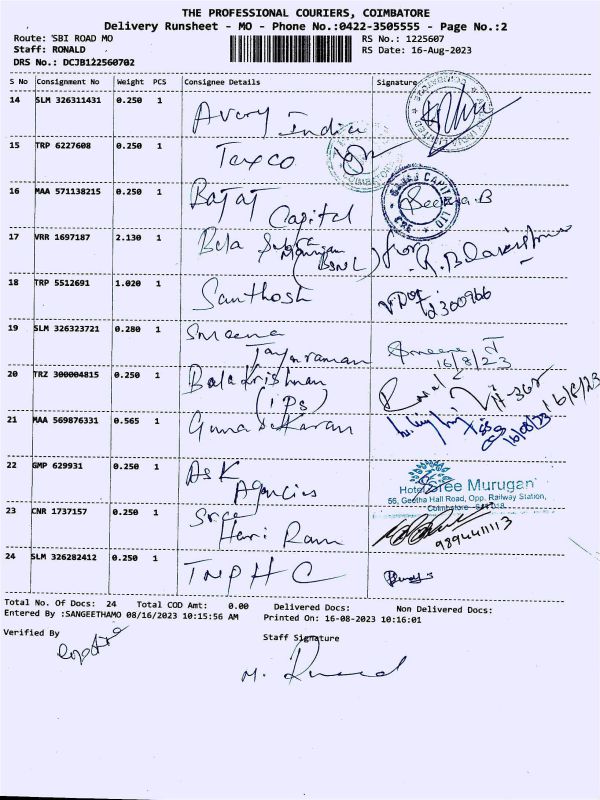 THE PROFESSIONAL COURIERS, COIMBATORE
Delivery Runsheet - MO - Phone No.:0422-3505555 - Page No.:2
Route: 'SBI ROAD MO
RS No.: 1225607
Staff: RONALD
RS Date: 16-Aug-2023
DRS No.: DCJB122560702
S No Consignment No Weight PCS Consignee Details Signature
14 SLM 326311431 0.250 1 Avery India
15 TRP 6227608 0.250 1 Texco
16 MAA 571138215 0.250 1 Bajaj Capital
BAJAJ CAPITAL LTD
17 VRR 1697187 2.130 1 Bala Murugan (BSNL) for R. Balakrishnan
18 TRP 5512691 1.020 1 Santhosh
2300766
19 SLM 326323721 0.280 1 Smeena Jayaraman
16/8/23
20 TRZ 300004815 0.250 1 Bala Krishnan (IPS)
16/8/23
21 MAA 569876331 0.565 1 Guna Sekaran
16/08/23
22 GMP 629931 0.250 1 ASK Agencies
Hotel Sree Murugan
56, Geetha Hall Road, Opp. Railway Station,
Coimbatore - 641 018
23 CNR 1737157 0.250 1 Sree Hari Ram
9894411113
24 SLM 326282412 0.250 1 TNPHC
Total No. Of Docs: 24 Total COD Amt: 0.00 Delivered Docs: Non Delivered Docs:
Entered By :SANGEETHAMO 08/16/2023 10:15:56 AM Printed On: 16-08-2023 10:16:01
Verified By
Staff Signature